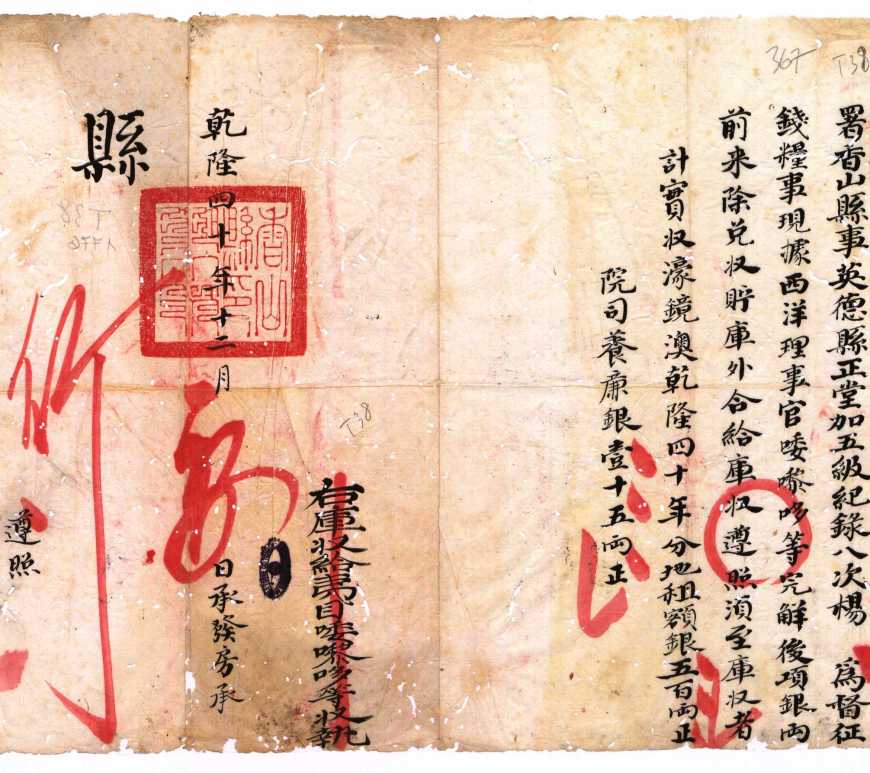 署香山縣事英德縣正堂加五級紀錄八次楊 為督征
錢糧事現據西洋理事官唛嚟哆等完解後項銀兩
前来除兑收貯庫外合給庫收遵照湏至庫收者
計實收濠鏡澳乾隆四十年分地租額銀五百兩正
院司養廉銀壹十五兩正
右庫收給夷目唛嚟哆等收執
乾隆四十年十二月 日承發房承
縣
遵照
367
T38
T38
T38